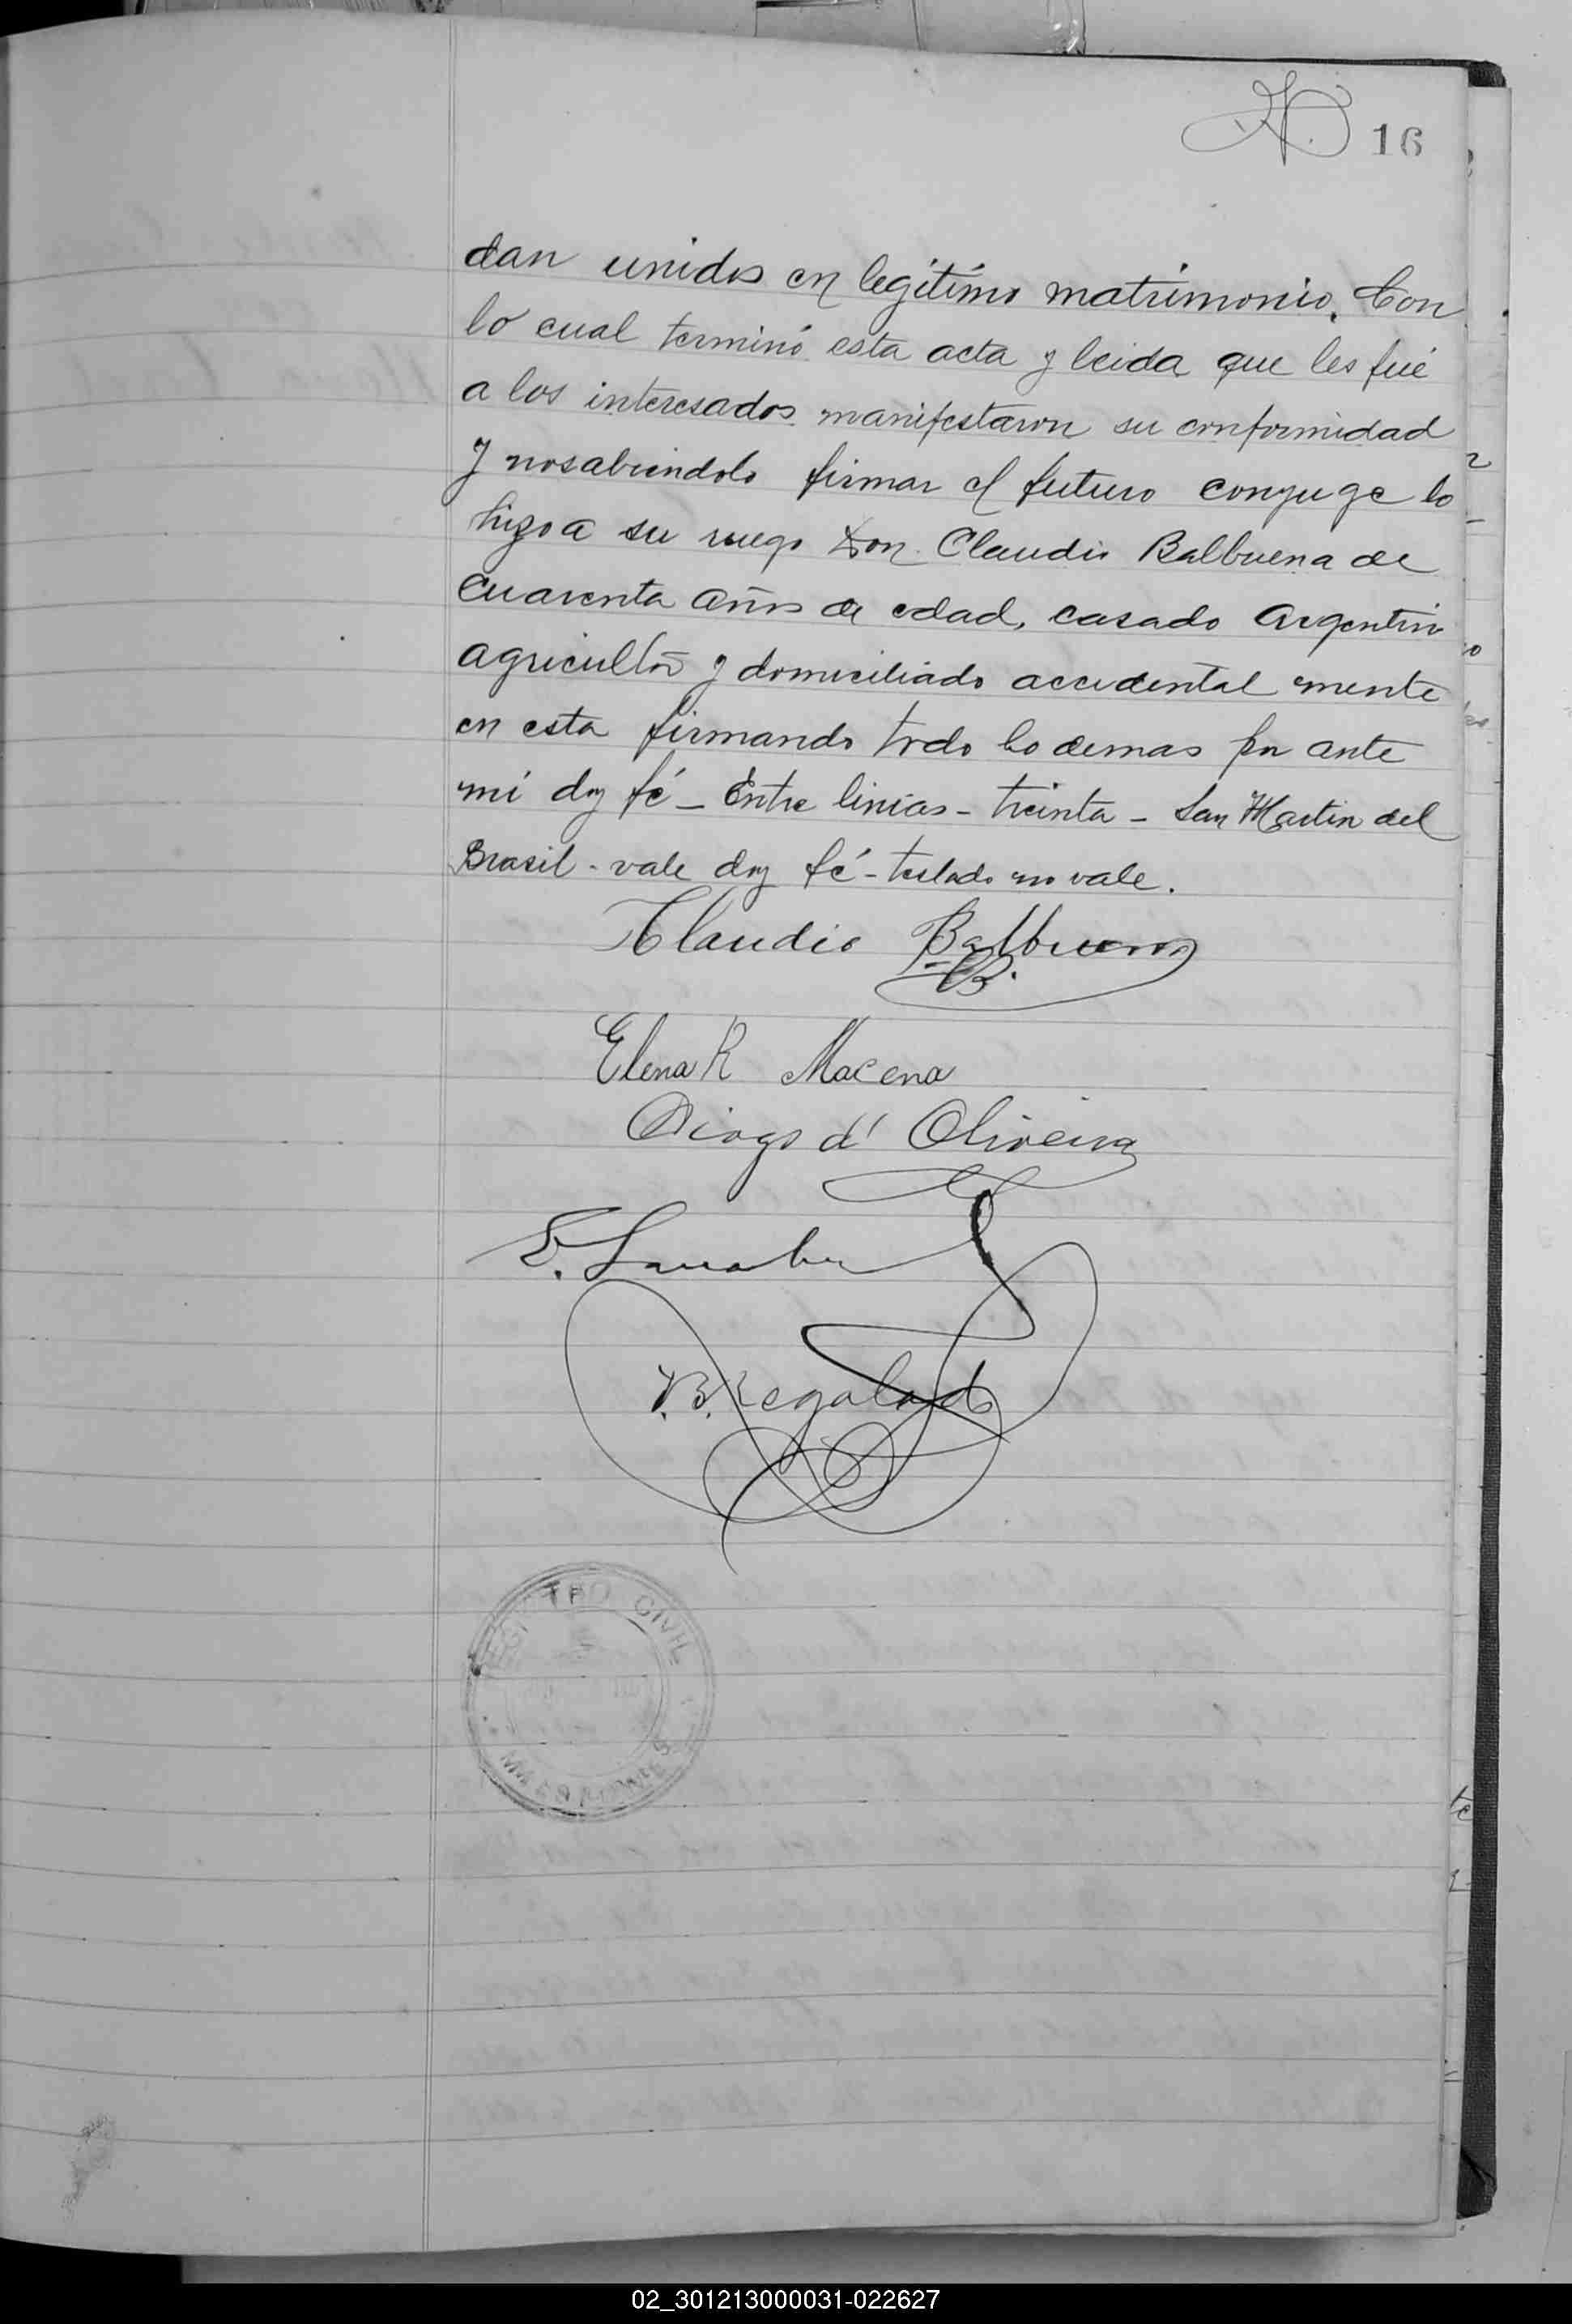 16
dan unidos en legítimo matrimonio. Con
lo cual terminó esta acta y leida que les fué
a los interesados manifestaron su conformidad
y nosabiendolo firmar el futuro conyuge lo
hizo a su ruego Don Claudio Balbuena de
cuarenta años de edad, casado Argentino
agricultor y domiciliado accidental mente
en esta firmando todo lo demas por ante
mi doy fé - Entre linias - treinta - San Martin del
Brasil - vale doy fé - testado no vale.
Claudio Balbuena
B.
Elena R Macena
Diogo d' Oliveira
E.
V.B. Regalado
REGISTRO CIVIL
MISIONES
02_301213000031-022627